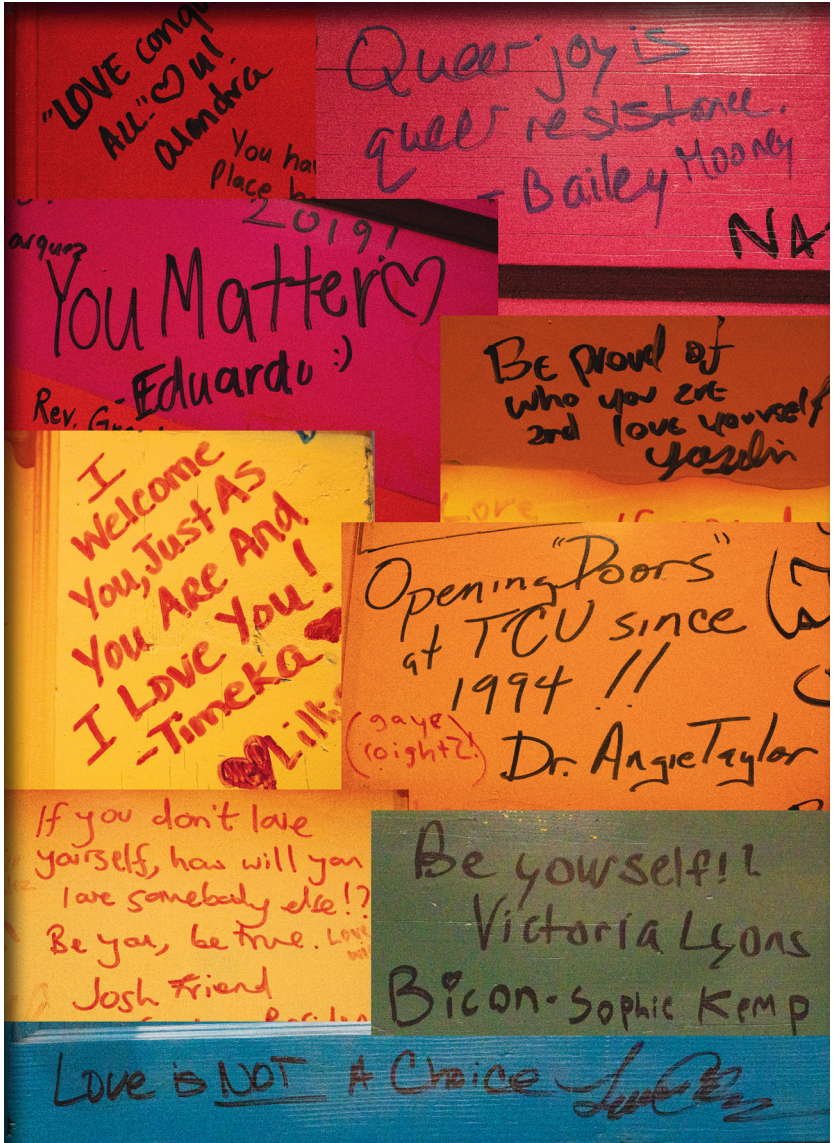 "LOVE conq
ALL" ♡ u!
alondra
You ha
Place b
Queer joy is
queer resistance.
- Bailey Mooney
NA
2019!
arquez
You Matter ♡
- Eduardo :)
Rev. Gra
Be proud of
who you are
and love yourself
Yoselin
Love
I
Welcome
You, Just As
You Are And
I Love You!
-Timeka
Lilh
Opening "Doors"
at TCU since
1994 !!
(gaye
roight?!)
Dr. Angie Taylor
If you don't love
yourself, how will you
love somebody else!?
Be you, be true.
Love
Josh Friend
Be yourself!?
Victoria Lyons
Bicon - Sophie Kemp
Love is NOT A Choice